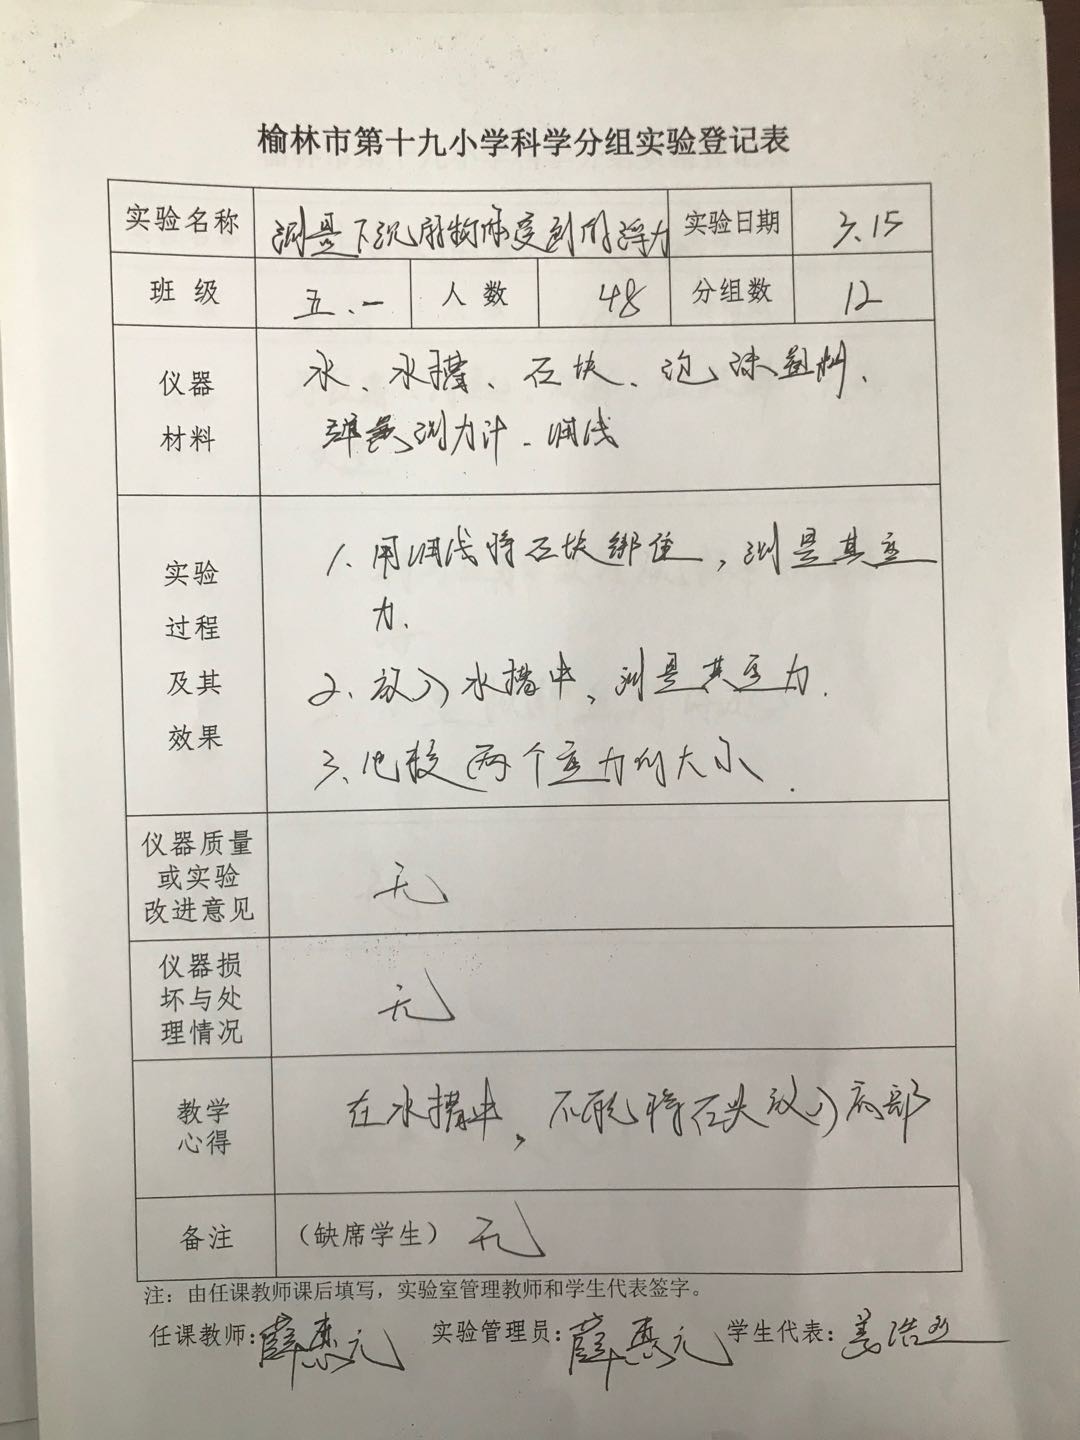 榆林市第十九小学科学分组实验登记表
实验名称 测量下沉的物体受到的浮力 实验日期 3.15
班级 五.一 人数 48 分组数 12
仪器
材料
水、水槽、石块、泡沫塑料、
弹簧测力计、细线
实验
过程
及其
效果
1.用细线将石块绑住,测量其重
力.
2.放入水槽中,测量其重力.
3.比较两个重力的大小.
仪器质量
或实验
改进意见
无
仪器损
坏与处
理情况
无
教学
心得
在水槽中,不能将石头放入底部
备注 (缺席学生) 无
注:由任课教师课后填写,实验室管理教师和学生代表签字。
任课教师:薛惠元 实验管理员:薛惠元 学生代表:姜浩